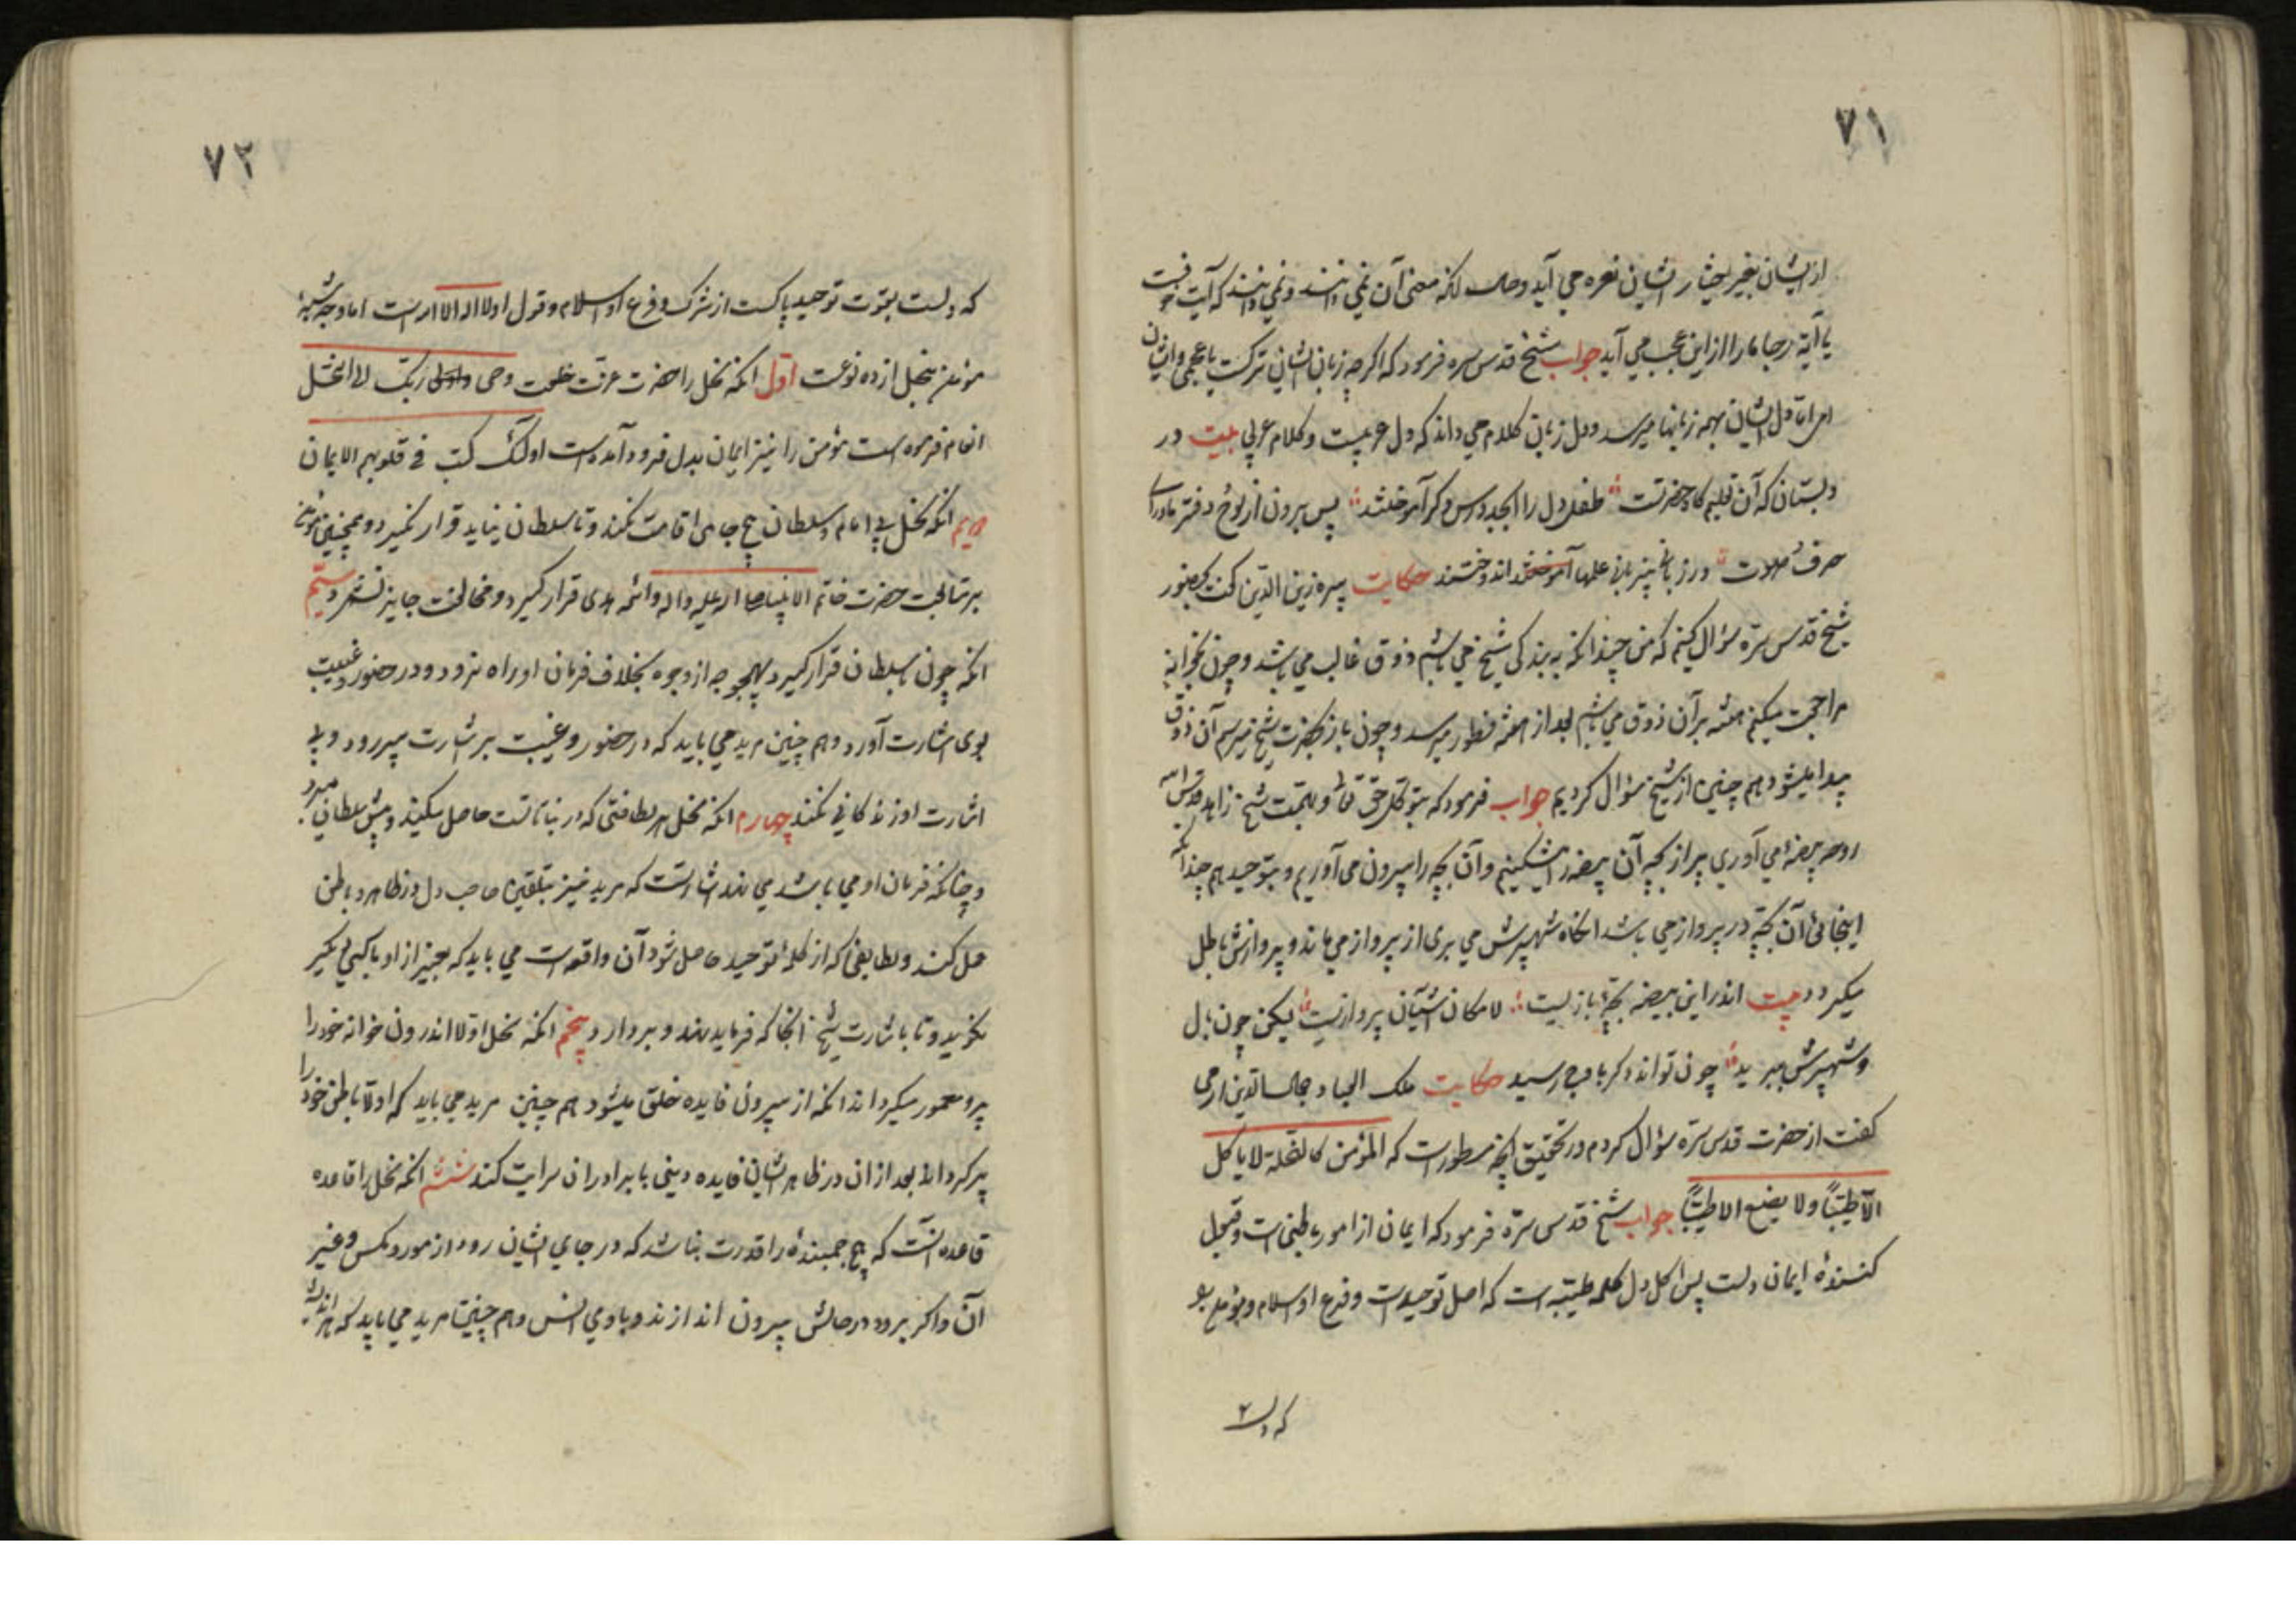 ۷۱
از ایشان بغیر اختیار ایشان نعره می آید و حال آنکه معنی آن نمی دانند و نمی دانند که آیت خوفست
یا آیة رجا ما را از این عجب می آید جواب شیخ قدس سره فرمود که اگر چه زبان ایشان ترکیست یا عجمی و ایشان
امی اما دل ایشان بهمه زبانها میرسد و دل زبان کلام می داند که دل عربیست و کلام عربی بیت در
دبستان که آن تعلیم کاه حضرتست طفل دل را ابجد و درس دکر آموختند پس برون از لوح و دفتر ماورای
حرف و صوت در زبان بیزبانی علمها اندوختند حکایت پیره زین الدین کفت بحضور
شیخ قدس سره سؤال کنیم که من چندانکه به بندکی شیخ می باشم ذوق غالب می باشد و چون بخوانه
مراجعت میکنم هفته بر آن ذوق می باشم بعد از هفته فتور میرسد و چون باز بحضرت شیخ میرسم آن ذوق
پیدا میشود هم چنین از شیخ سؤال کردیم جواب فرمود که بتوکل حق تعالی و بهمت شیخ زاهد قدس الله
روحه بیضه می آوری پر از بچه آن بیضه را میشکنیم و آن بچه را بیرون می آوریم و بتوحید هم چندانکه
اینجائی آن بچه در پرواز می باشد آنکاه شهپرش می بری از پرواز می ماند و پروازش باطل
میکردد بیت اندر این بیضه بچهٔ بازیست لامکان آشیان پروازیست لیکن چون بال
و شهپرش ببرید چون تواند دکر باوج رسید حکایت ملک العباد جمال الدین ارمی
کفت از حضرت قدس سره سؤال کردم در تحقیق آنچه مسطور است که المؤمن کالنحلة لا یاکل
الا طیّباً ولا یضع الا طیّباً جواب شیخ قدس سرّه فرمود که ایمان از امور باطنی است و قبول
کنندهٔ ایمان دلست پس اکل دل کلمه طیّبه است که اصل توحید است و فرع او اسلام و موضع بو
که دلـ
۷۲
که دلست بقوت توحید پاکست از شرک و فرع او اسلام و قول او لا اله الا الله است اما وجه شبیه
مؤمن بنحل از ده نوعست اول آنکه نحل را حضرت عزت خلعت وحی واوحی ربّک الی النحل
انعام فرموده است مؤمن را نیز ایمان بدل فرود آمده است اولئک کتب فی قلوبهم الایمان
دویم آنکه نحل بی امام و سلطان هیچ جای اقامت نکند و تا سلطان نیاید قرار نکیرد و همچنین مؤمن
بر متابعت حضرت خاتم الانبیا صلی الله علیه واله وائمه هدی قرار کیرد و مخالفت جایز نشمرد سیّم
آنکه چون با سلطان قرار کیرد بهیچوجه از وجوه بخلاف فرمان او راه نرود و در حضور و غیبت
بوی اشارت آورد و هم چنین مرید می باید که در حضور و غیبت بر اشارت پیر رود و بی
اشارت او زندکانی نکند چهارم آنکه نحل هر لطافتی که در نباتاتست حاصل میکند و پیش سلطان میبرد
و چنانکه فرمان او می باشد می نهد اشارتست که مرید نیز بتلقین صاحب دل در ظاهر و باطن
عمل کند و لطایفی که از کلمهٔ توحید حاصل شود آن واقعه است می باید که بغیر از او با کسی دیکر
نکوید و تا باشارت شیخ آنجا که فرماید نهد و بردارد پنجم آنکه نحل اولا اندرون خوانه خود را
پر و معمور میکرداند آنکه از بیرون فایده خلق میشود هم چنین مرید می باید که اولا باطن خود را
پر کرداند بعد از آن در ظاهر ایشان فایده دینی با برادران سرایت کند ششم آنکه نحل را قاعده
قاعده آنست که هیچ جمبندهٔ را قدرت نباشد که در جای ایشان رود از مور و مکس و غیر
آن و اکر برود در حالش بیرون اندازند و با وی انس و هم چنین مرید می باید که هر اندیشهٔ